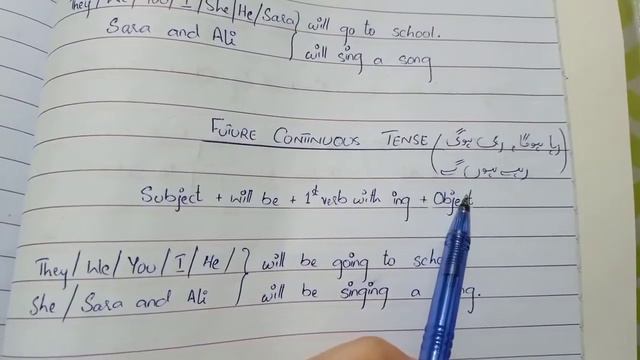 They/We/You/I/She/He/Sara
Sara and Ali
will go to school.
will sing a song
FUTURE CONTINUOUS TENSE (رہا ہوگا, رہی ہوگی
رہے ہوں گے)
Subject + will be + 1st verb with ing + Object
They/We/You/I/He/
She/Sara and Ali
will be going to
will be singing a